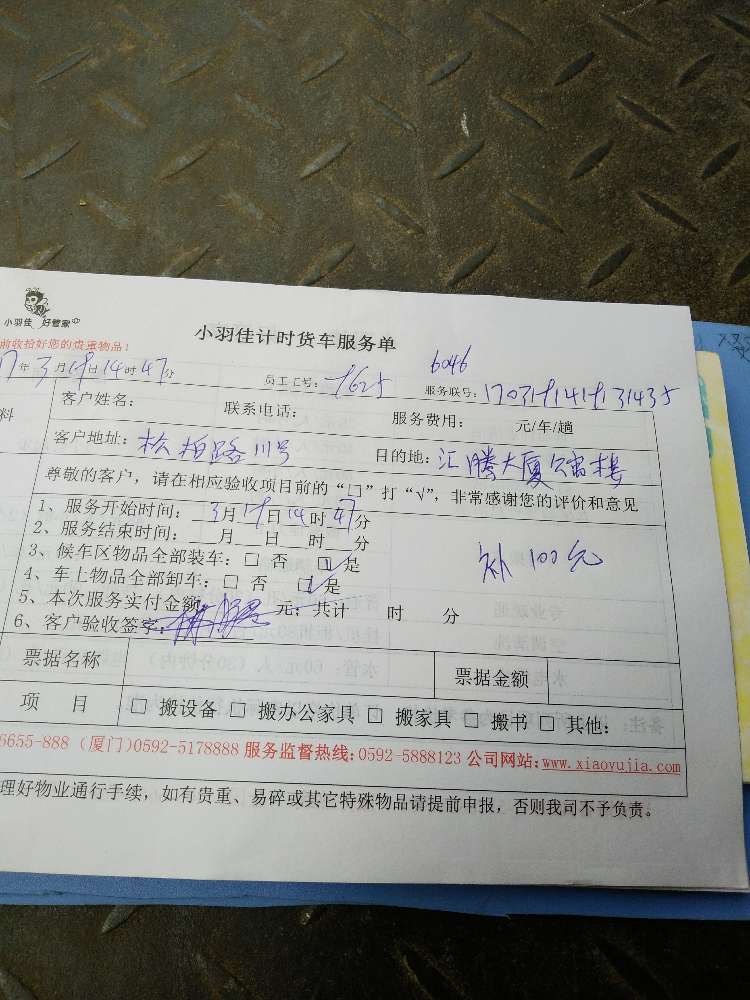 小羽佳 好管家
小羽佳计时货车服务单
前收拾好您的贵重物品!
6046
年3月 日14时47分
员工工号: 服务联号:
料 客户姓名: 联系电话: 服务费用: 元/车/趟
客户地址:松柏路111号 目的地:汇腾大厦 楼
尊敬的客户,请在相应验收项目前的“□”打“√”,非常感谢您的评价和意见
1、服务开始时间:3月 日14时47分
2、服务结束时间:__月__日__时__分
3、候车区物品全部装车:□ 否 ☑ 是 补100元
4、车上物品全部卸车:□ 否 ☑ 是
5、本次服务实付金额 元;共计 时 分
6、客户验收签字:
票据名称 票据金额
项 目 □ 搬设备 □ 搬办公家具 □ 搬家具 □ 搬书 □ 其他:
5655-888 (厦门)0592-5178888 服务监督热线:0592-5888123 公司网站:www.xiaoyujia.com
理好物业通行手续,如有贵重、易碎或其它特殊物品请提前申报,否则我司不予负责。